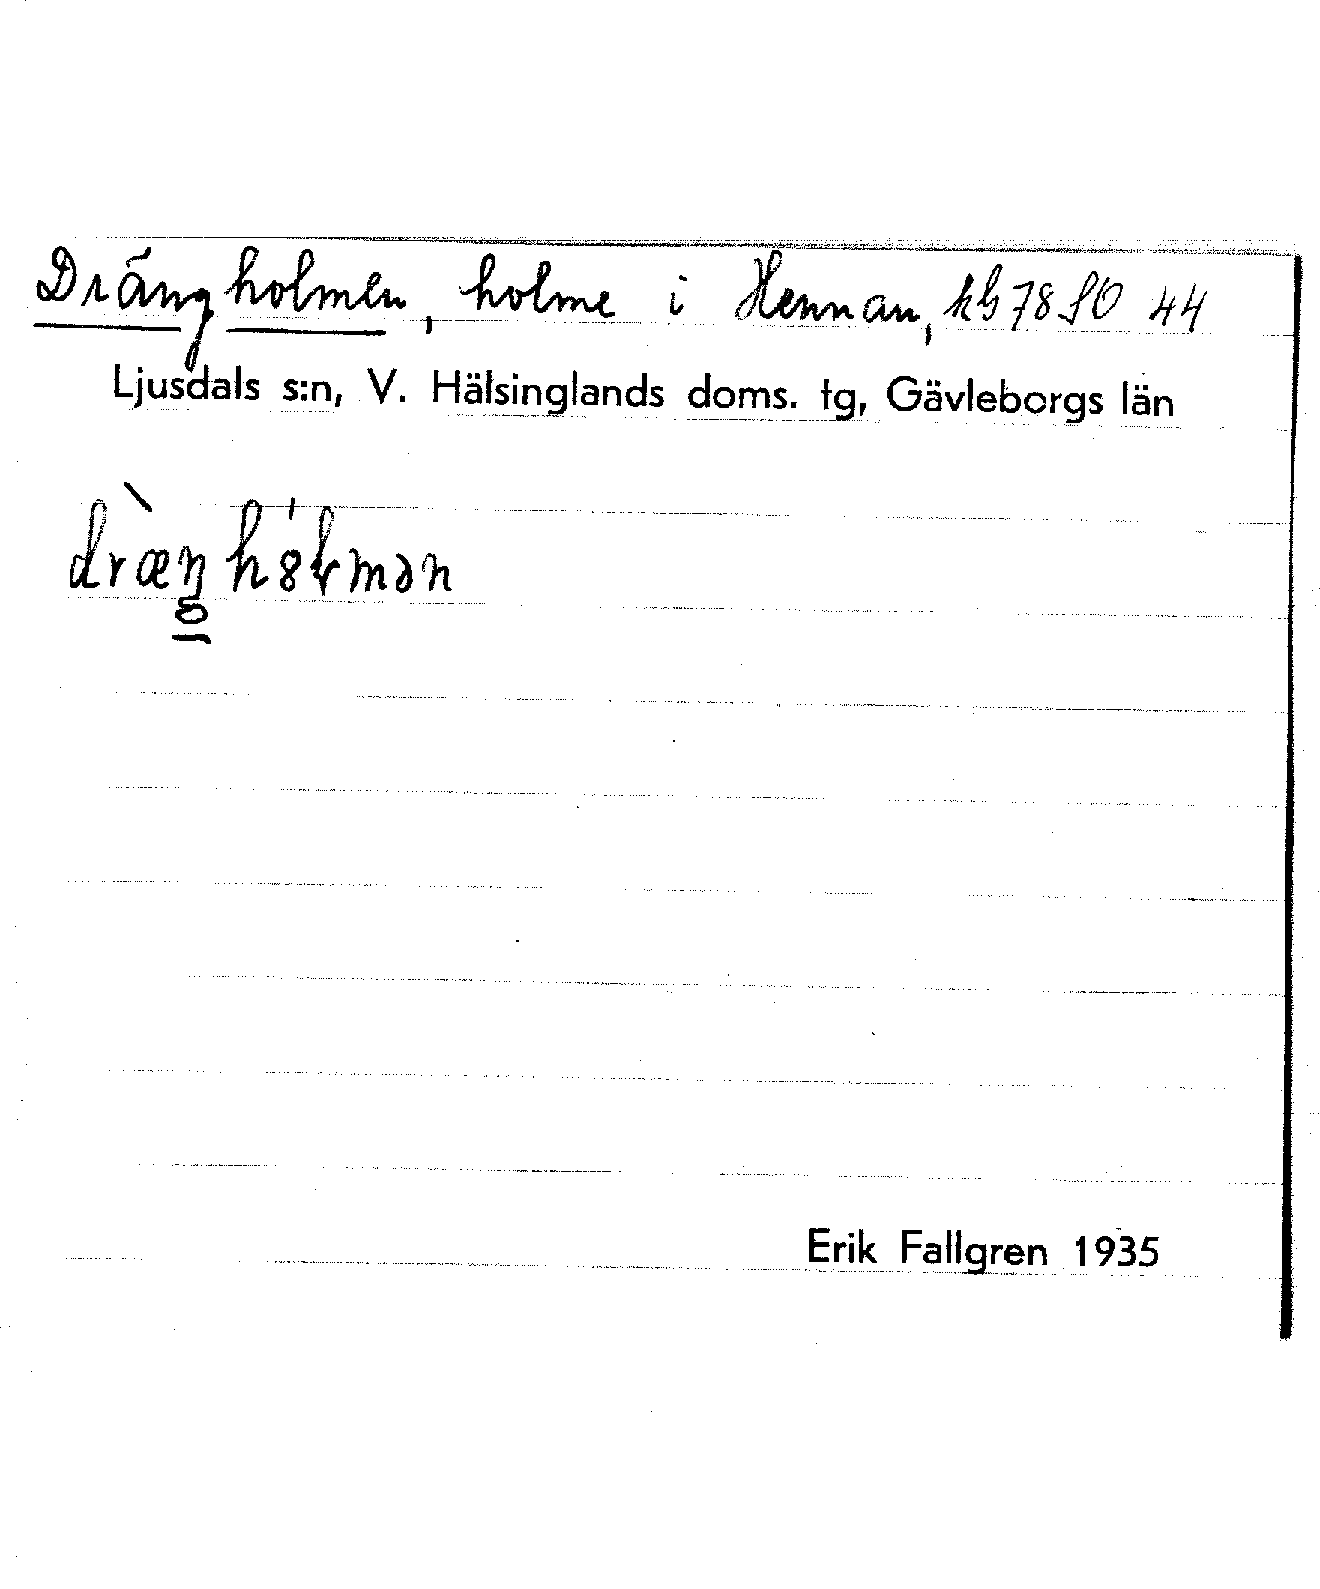 Drängholmen, holme i Hennan, kb 78 SO 44
Ljusdals s:n, V. Hälsinglands doms. tg, Gävleborgs län
Erik Fallgren 1935